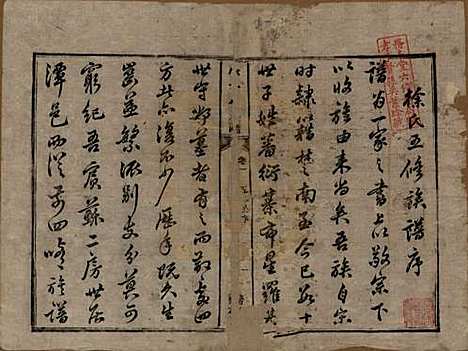 徐氏五修族譜序
譜者一家之書古敬宗下
以收族由来尚矣吾族自宗
時隸籍楚之南至今已數十
世子姓蕃衍葉布星羅其
世守邱墓者有之而散處四
方者亦復不少歷年既久生
齒益繁派別支分莫可
窮紀吾賓蘇二房世居
潭邑西從前四修族譜